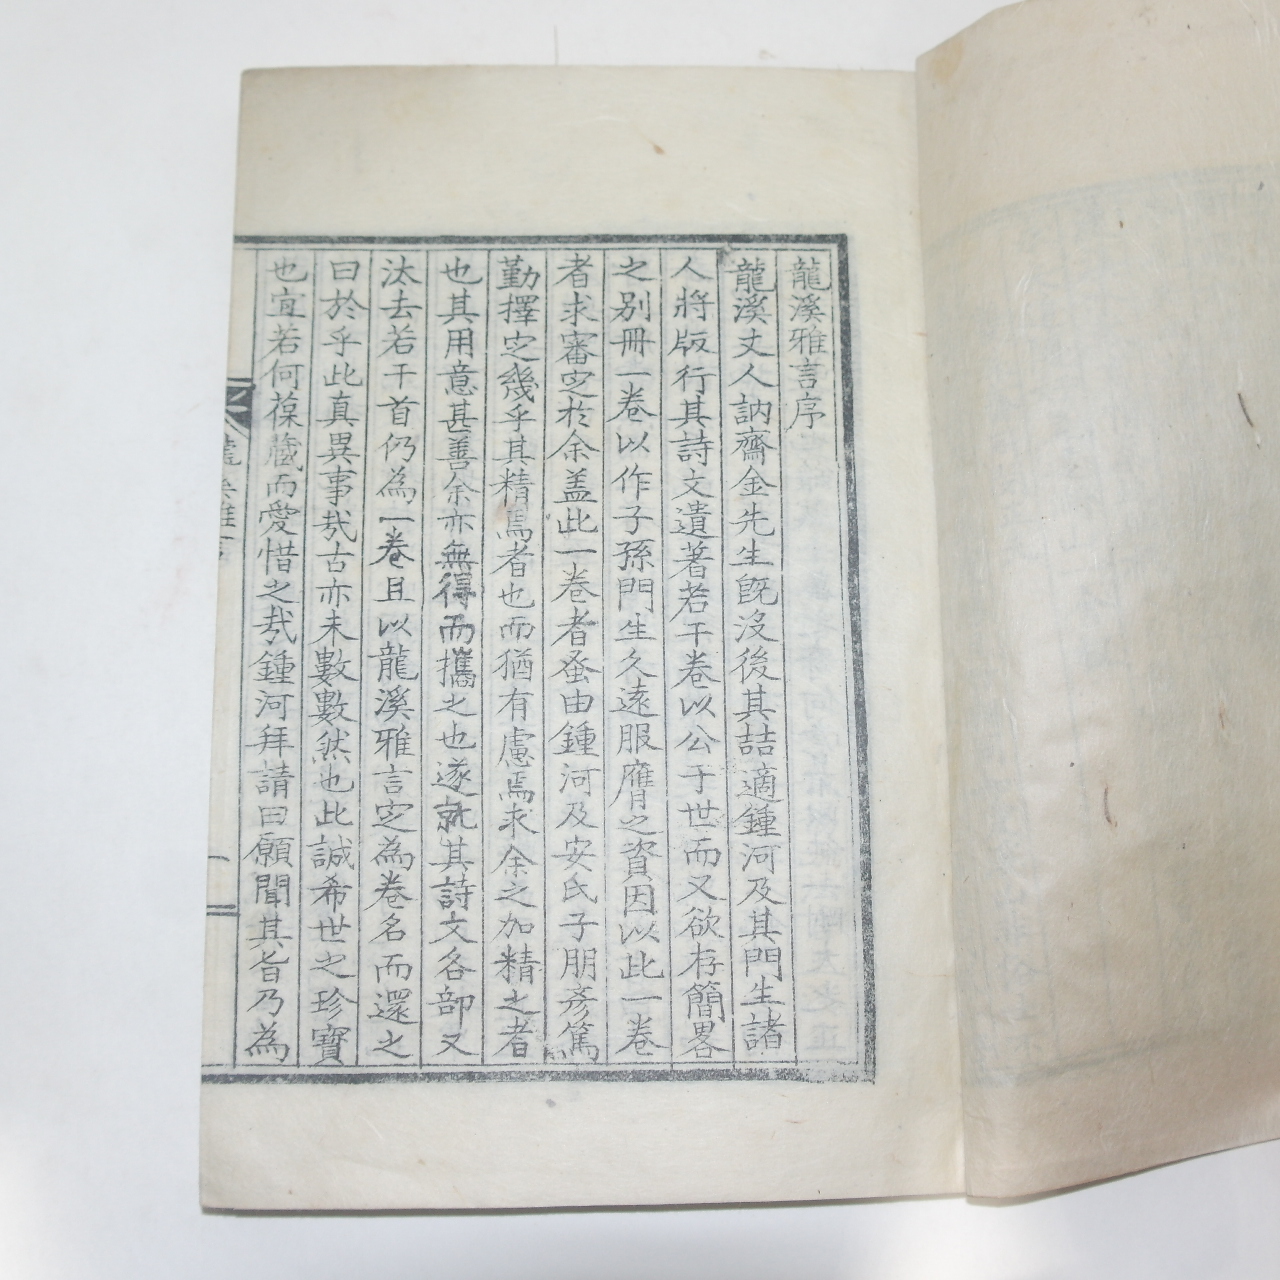 龍溪雅言序
龍溪丈人訥齋金先生旣沒後其喆適鍾河及其門生諸
人將版行其詩文遺著若干卷以公于世而又欲存簡畧
之別冊一卷以作子孫門生久遠服膺之資因以此一卷
者求審定於余盖此一卷者蚤由鍾河及安氏子朋彦篤
勤擇定幾乎其精焉者也而猶有慮焉求余之加精之者
也其用意甚善余亦無得而攜之也遂就其詩文各部又
汰去若干首仍為一卷且以龍溪雅言定為卷名而還之
曰於乎此真異事㢤古亦未數數然也此誠希世之珍寶
也宜若何葆藏而愛惜之㢤鍾河拜請曰願聞其旨乃為
龍溪雅言
一